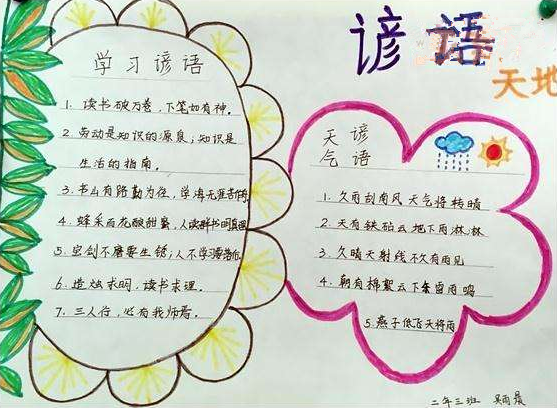 谚语
天地
学习谚语
1. 读书破万卷，下笔如有神。
2. 劳动是知识的源泉；知识是
生活的指南。
3. 书山有路勤为径，学海无涯苦作
4. 蜂采百花酿甜蜜，人读群书明真理
5. 宝剑不磨要生锈；人不学习要落伍
6. 造烛求明，读书求理。
7. 三人行，必有我师焉。
天气
谚语
1. 久雨刮南风 天气将转晴
2. 天有铁砧云 地下雨淋淋
3. 久晴天射线 不久有雨见
4. 朝有棉絮云 下午雷雨鸣
5. 燕子低飞天将雨
二年三班 吴雨晨